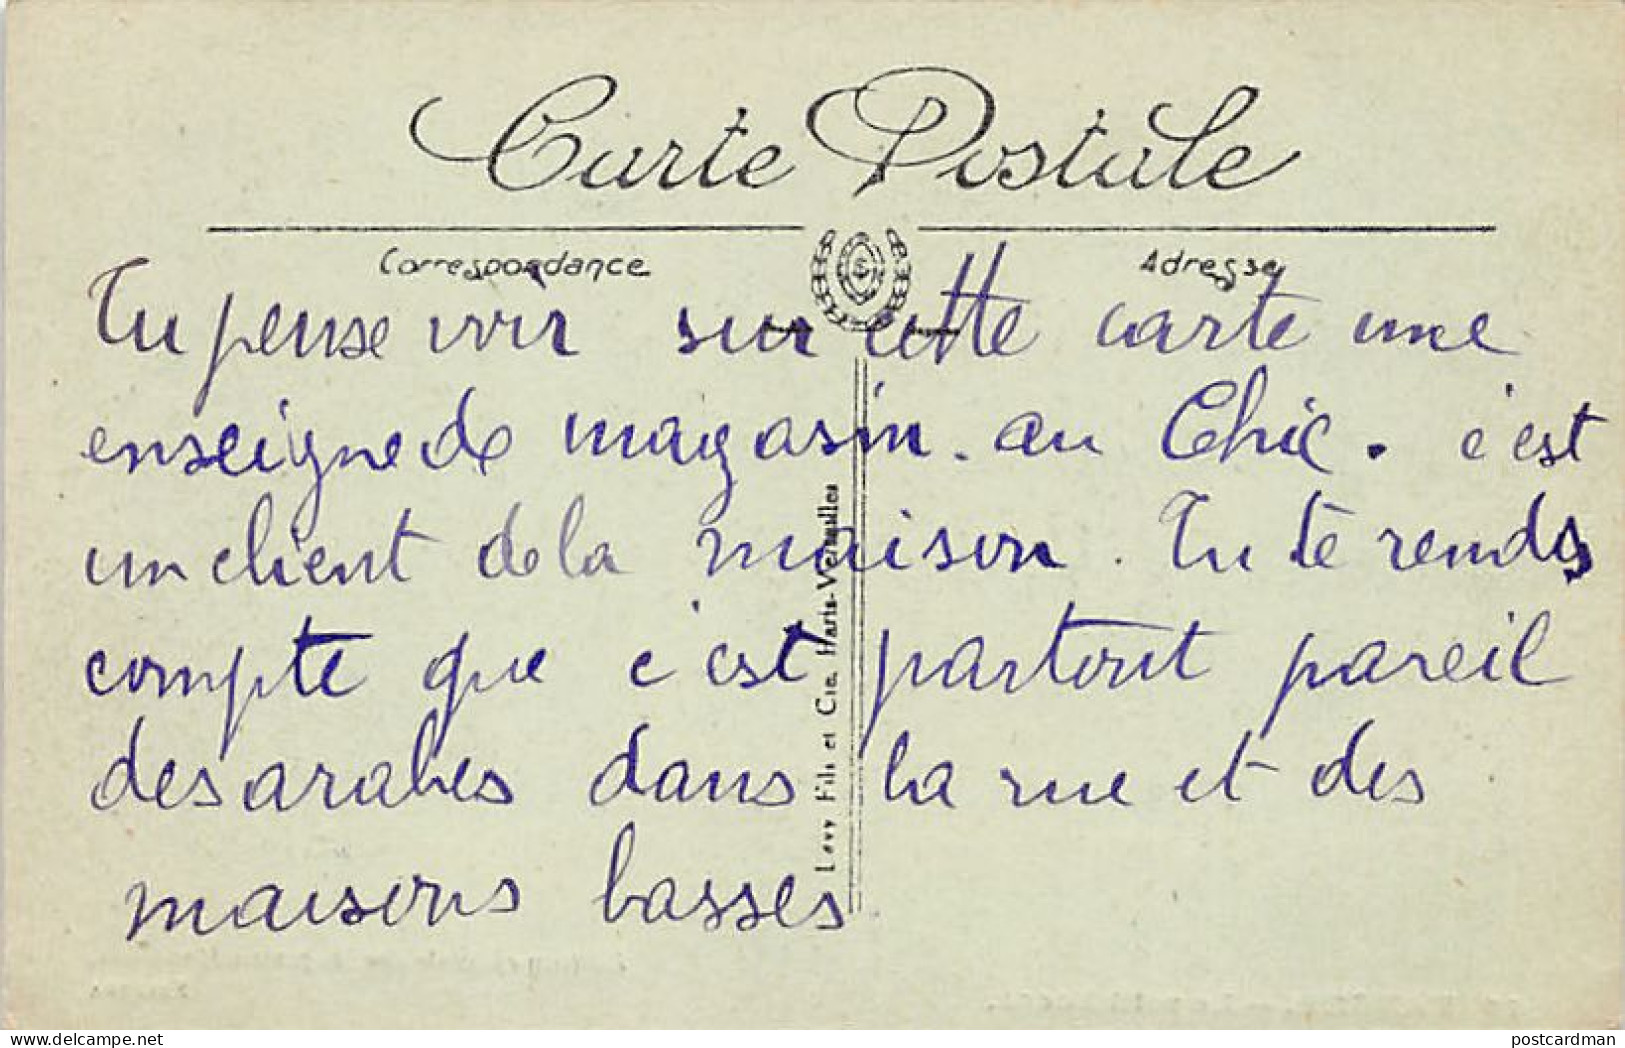 Carte Postale
Correspondance
Adresse
Tu pense voir sur cette carte une
enseigne de magasin. au Chic. c'est
un client de la maison. Tu te rends
compte que c'est partout pareil
des arabes dans la rue et des
maisons basses
Levy Fils et Cie, Paris-Versailles
postcardman